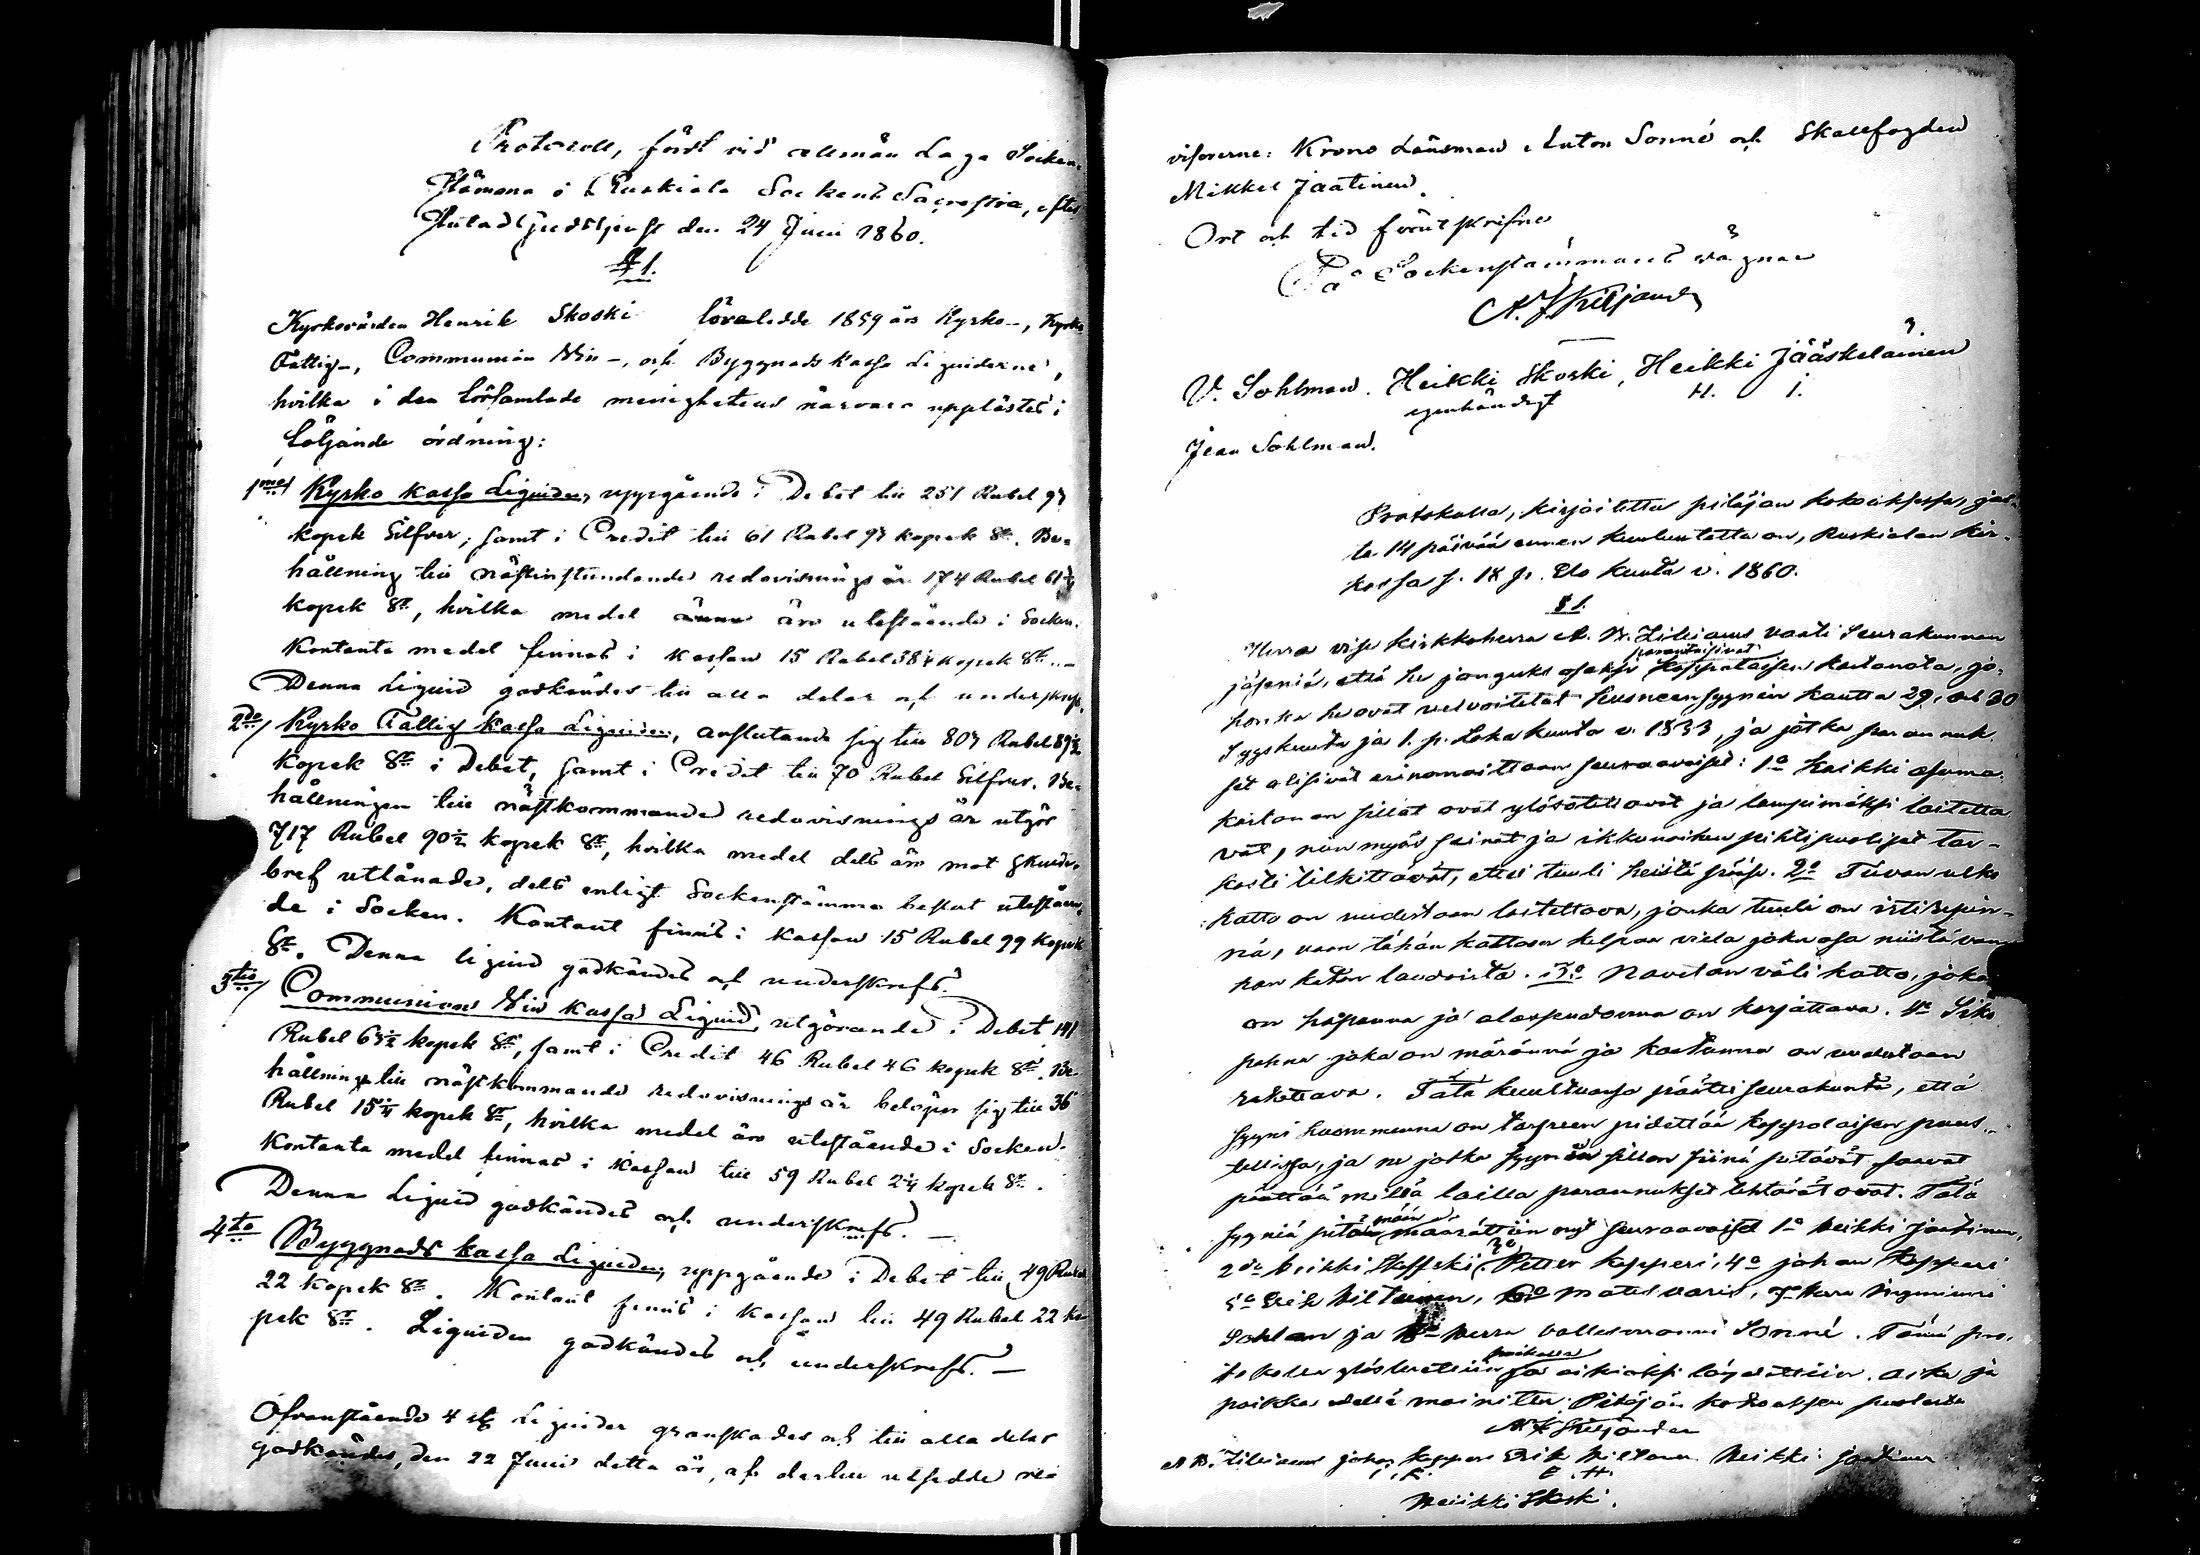 Protocoll, fördt vid allmän Laga Socken-
stämma i Ruskiala Sockens Sacristia, efter
slutad Gudstjenst den 24 Juni 1860.
§ 1.
Kyrkovärden Henrik Skoski företedde 1859 års Kyrko-, Kyrko
Fattig-, Communion Win-, och Byggnads kassa Liquiderne,
hvilka i den församlade menighetens närvaro upplästes i
följande ordning:
1mo/ Kyrko kassa Liquiden, uppgående i Debet till 251 Rubel 97
kopek Silfver, samt i Credit till 61 Rubel 97 kopek Sr. Be-
hållning till nästinstundande redovisnings år 174 Rubel 61
kopek Sr, hvilka medel äro utestående i Socken.
Kontanta medel finnas i kassan 15 Rubel 38 kopek Sr. –
Denna Liquid godkändes till alla delar och underskrefs.
2do/ Kyrko Fattig kassa Liquiden, afslutande sig till 807 Rubel 89
kopek Sr i Debet, samt i Credit till 70 Rubel Silfver. Be-
hållningen till nästkommande redovisnings år utgör
717 Rubel 90½ kopek Sr, hvilka medel dels äro mot skulde-
bref utlånade, dels enligt Sockenstämma beslut uteståen-
de i Socken. Kontant finns i kassan 15 Rubel 99 kopek
Sr. Denna liquid godkändes och underskrefs.
3tio/ Communions Win kassa Liquid, utgörande i Debet 141
Rubel 63½ kopek Sr, samt i Credit 46 Rubel 46 kopek Sr. Be-
hållning till nästkommande redovisnings år belöper sig till 36
Rubel 15¼ kopek Sr, hvilka medel äro utestående i Socken.
Kontanta medel finnas i kassan till 59 Rubel 2¼ kopek Sr.
Denna Liquid godkändes och underskrefs. –
4to Byggnads kassa Liquiden, uppgående i Debet till 49 Rubel
22 kopek Sr. Kontant finns i kassan till 49 Rubel 22 ko-
pek Sr. Liquiden godkändes och underskrefs. –
Ofvanstående 4 Liquider granskades och till alla delar
godkändes, den 22 Juni detta år, af dertill utsedde re-
visorerne: Krono Länsman Anton Sonné och Skallfogden
Mikkel Jaatinen.
Ort och tid förutskrifne
På Sockenstämmans vägnar
V. Sohlman. Heikki Skoski, Heikki Jääskeläinen
egenhändigt H. J.
Jean Sohlman.
Protokolla, kirjoitettu pitäjän kokouksessa, jos-
ta 14 päivää ennen kuulutettu on, Ruskialan kir-
kossa s. 18 p. Elo kuuta v. 1860.
§ 1.
Herra vise kirkkoherra vaati Seurakunnan
jäseniä, että he parantaisivat kartanota, jo-
honka he ovat velvoitetut kautta 29, ja 30
Syys kuuta ja 1. p. Loka kuuta v. 1833, ja jotka parannuk-
set olisivat seuraavaiset: 1o Kaikki asuma-
kartanon sillat ovat ylösotettavat ja lämpimäksi laitetta-
vat, niin myös seinät ja ikkunoihen pihtipuoliset tar-
kasti tilkittävät, ettei tuuli heistä pääse. 2o Tuvan ulko
katto on uudestaan laitettava, jonka tuuli on
nä, vaan tähän kattoon kelpaa vielä joku osa niistä van-
han katon laudoista. 3o Navetan väli katto, joka
on ja alaspudonna on korjattava. 4o Sika
pahna joka on märännä ja kaatunna on uudestaan
rakettava. Tätä kuultuansa päätti seurakunta, että
syyni on tarpeen pidettää kappalaisen
ja ne jotka syynin sillon siinä pitävät saavat
päättää millä lailla parannukset tehtävät ovat. Tätä
syyniä pitämään määrättiin nyt seuraavaiset 1o Heikki Jaatinen,
2do Heikki 3o Petter Kopperi, 4o Johan Kopperi
5o Erik Hiltunen, 6o Mats Varis, 7o herra
Sohlman ja 8o herra vallesmanni Sonné. Tämä pro-
tokolla ylösluettiin ja oikiaksi löydettiin. Aika ja
paikka edellä mainittu. Pitäjän kokouksen puolesta
Johan Kopperi Erik Hiltunen Heikki Jaatinen
J. K. E. H.
Heikki Skoski.